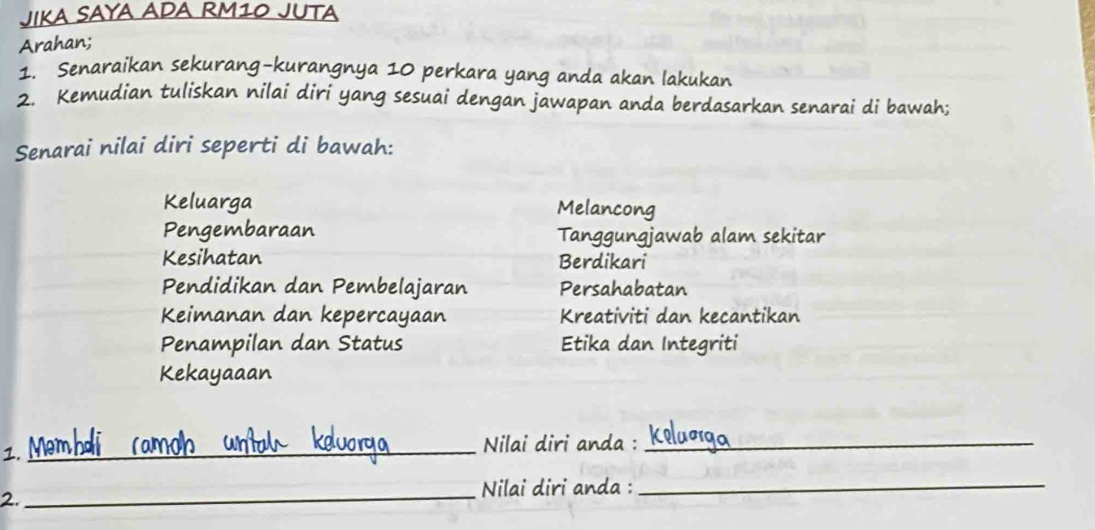 JIKA SAYA ADA RM10 JUTA
Arahan;
1. Senaraikan sekurang-kurangnya 10 perkara yang anda akan lakukan
2. Kemudian tuliskan nilai diri yang sesuai dengan jawapan anda berdasarkan senarai di bawah;
Senarai nilai diri seperti di bawah:
Keluarga Melancong
Pengembaraan Tanggungjawab alam sekitar
Kesihatan Berdikari
Pendidikan dan Pembelajaran Persahabatan
Keimanan dan kepercayaan Kreativiti dan kecantikan
Penampilan dan Status Etika dan Integriti
Kekayaaan
1. Membeli ramah untuk keluarga Nilai diri anda : Keluarga
2. Nilai diri anda :